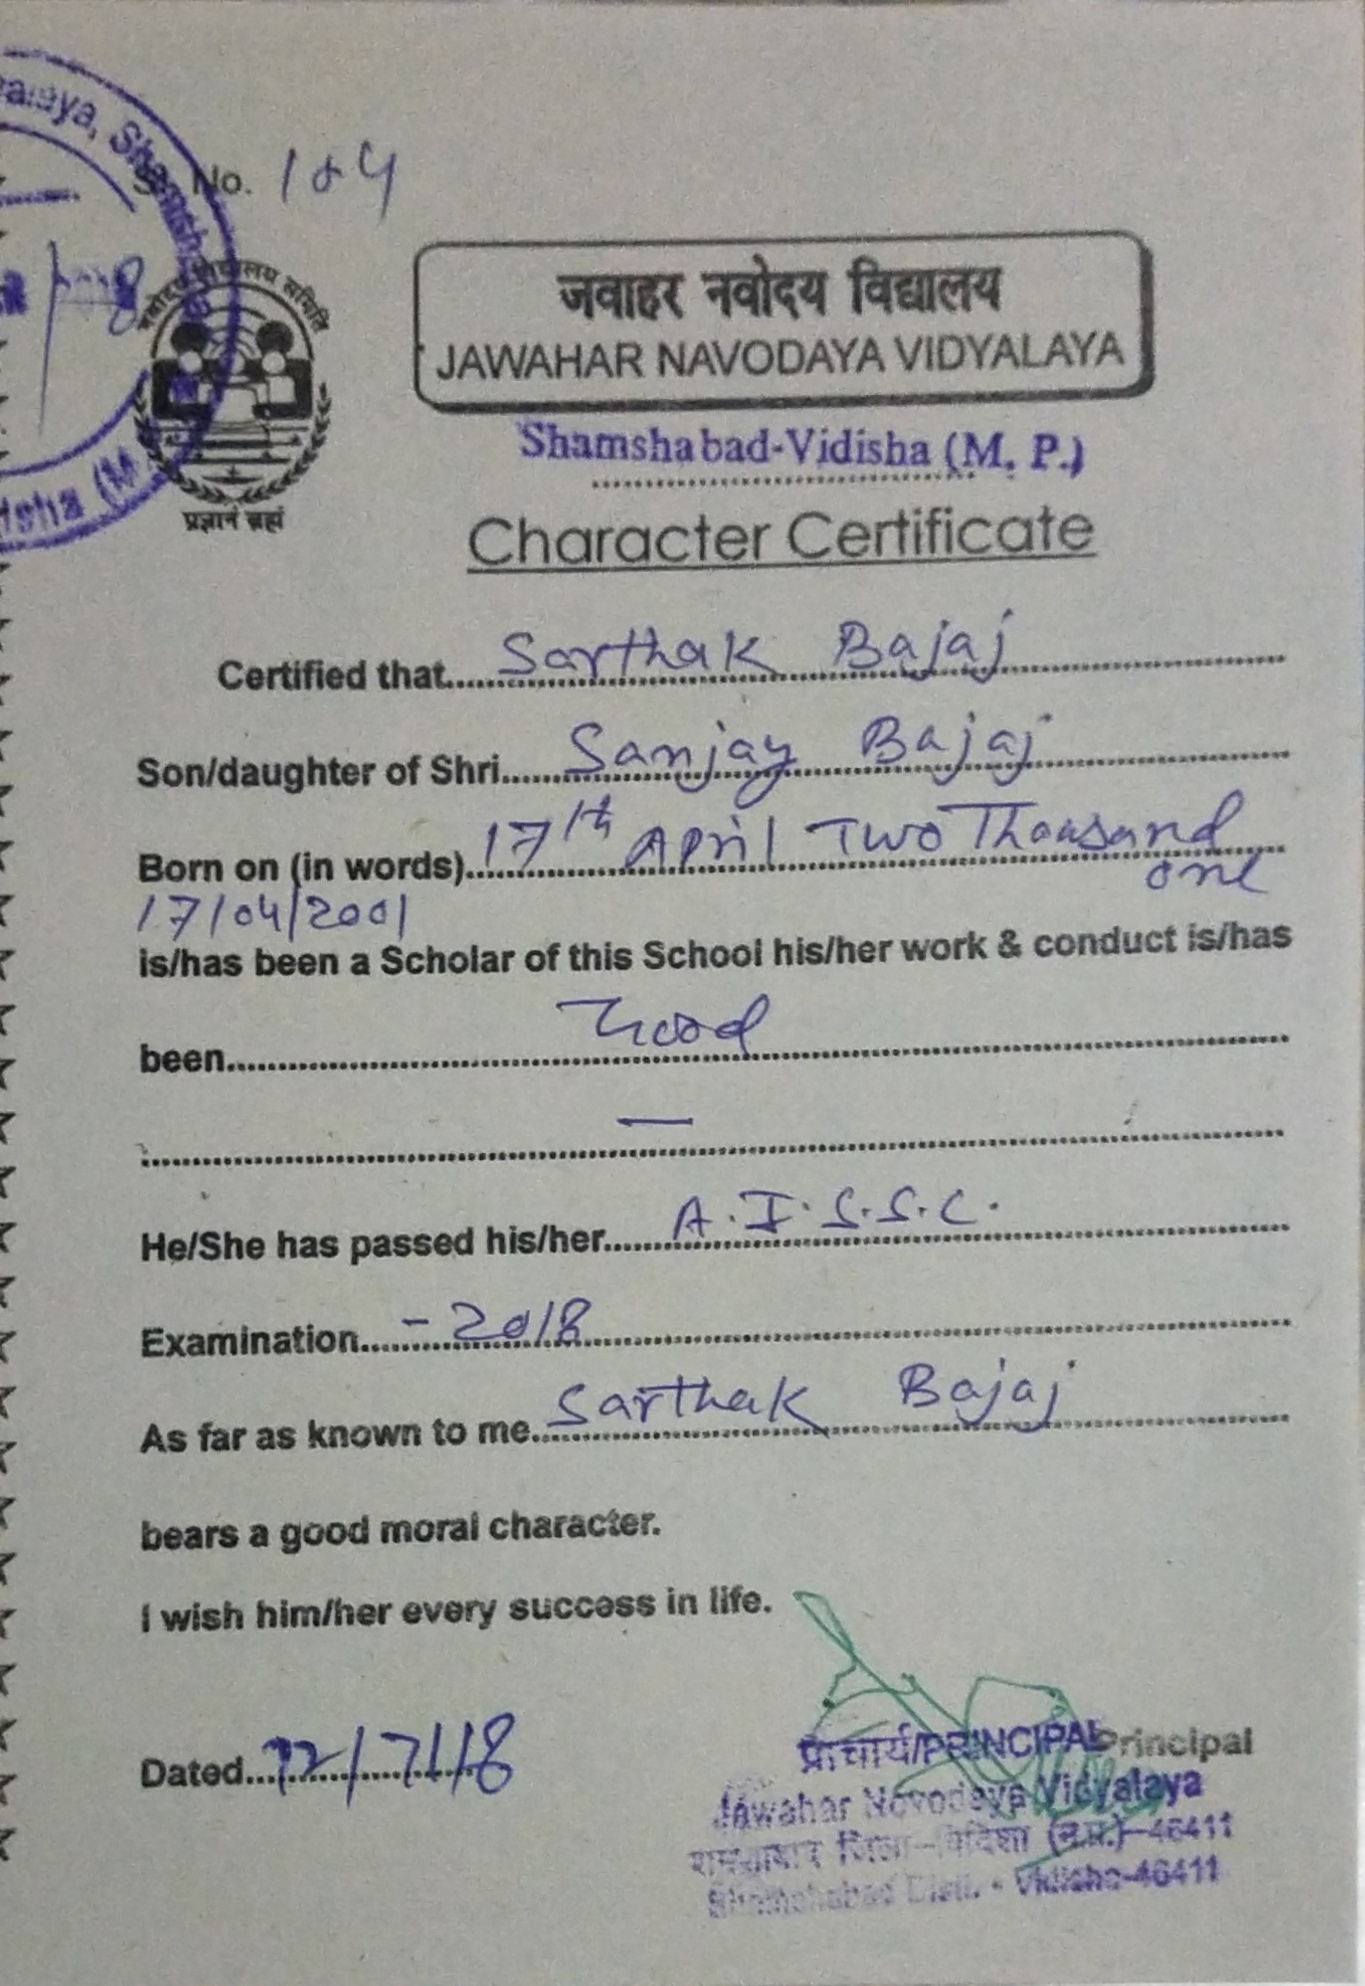 No. 104
जवाहर नवोदय विद्यालय
JAWAHAR NAVODAYA VIDYALAYA
Shamshabad-Vidisha (M. P.)
प्रज्ञानं ब्रह्म
Character Certificate
Certified that Sarthak Bajaj
Son/daughter of Shri Sanjay Bajaj
Born on (in words) 17th April Two Thousand
one
17/04/2001
is/has been a Scholar of this School his/her work & conduct is/has
been Good
—
He/She has passed his/her A.I.S.S.C.
Examination - 2018
As far as known to me Sarthak Bajaj
bears a good moral character.
I wish him/her every success in life.
Dated 12/7/18
प्राचार्य/PRINCIPAL Principal
Jawahar Novodaya Vidyalaya
जिला-विदिशा (म.प्र.)-46411
Shamshabad Distt. - Vidisha-46411